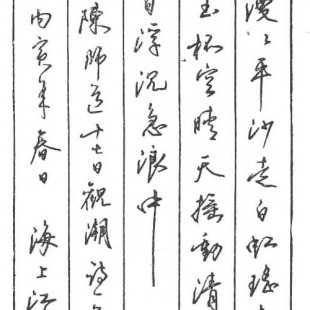 漫江平沙走白虹瑶
玉杯空晴天摇動清
浮沉急浪中
陳師道十七日觀潮詩一
丙寅年春日 海上